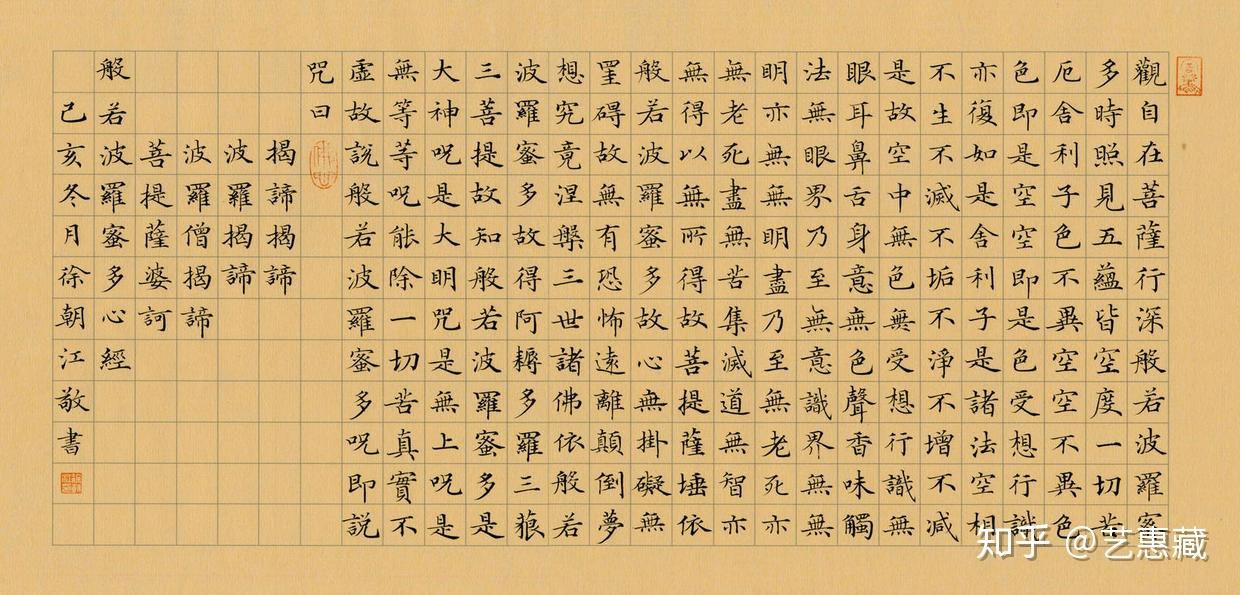 觀自在菩薩行深般若波羅蜜
多時照見五蘊皆空度一切苦
厄舍利子色不異空空不異色
色即是空空即是色受想行識
亦復如是舍利子是諸法空相
不生不滅不垢不淨不增不減
是故空中無色無受想行識無
眼耳鼻舌身意無色聲香味觸
法無眼界乃至無意識界無無
明亦無無明盡乃至無老死亦
無老死盡無苦集滅道無智亦
無得以無所得故菩提薩埵依
般若波羅蜜多故心無掛礙無
罣碍故無有恐怖遠離顛倒夢
想究竟涅槃三世諸佛依般若
波羅蜜多故得阿耨多羅三藐
三菩提故知般若波羅蜜多是
大神呪是大明咒是無上呪是
無等等呪能除一切苦真實不
虛故說般若波羅蜜多呪即說
咒曰
揭諦揭諦
波羅揭諦
波羅僧揭諦
菩提薩婆訶
般若波羅蜜多心經
己亥冬月徐朝江敬書
知乎 @艺惠藏